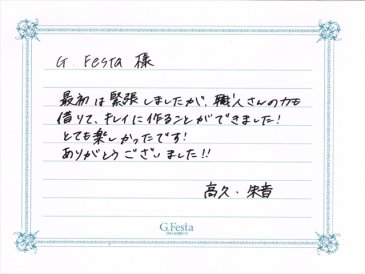 G. Festa 様
最初は緊張しましたが、職人さんの力も
借りて、キレイに作ることができました!
とても楽しかったです!
ありがとうございました!!
高久・朱音
G.Festa